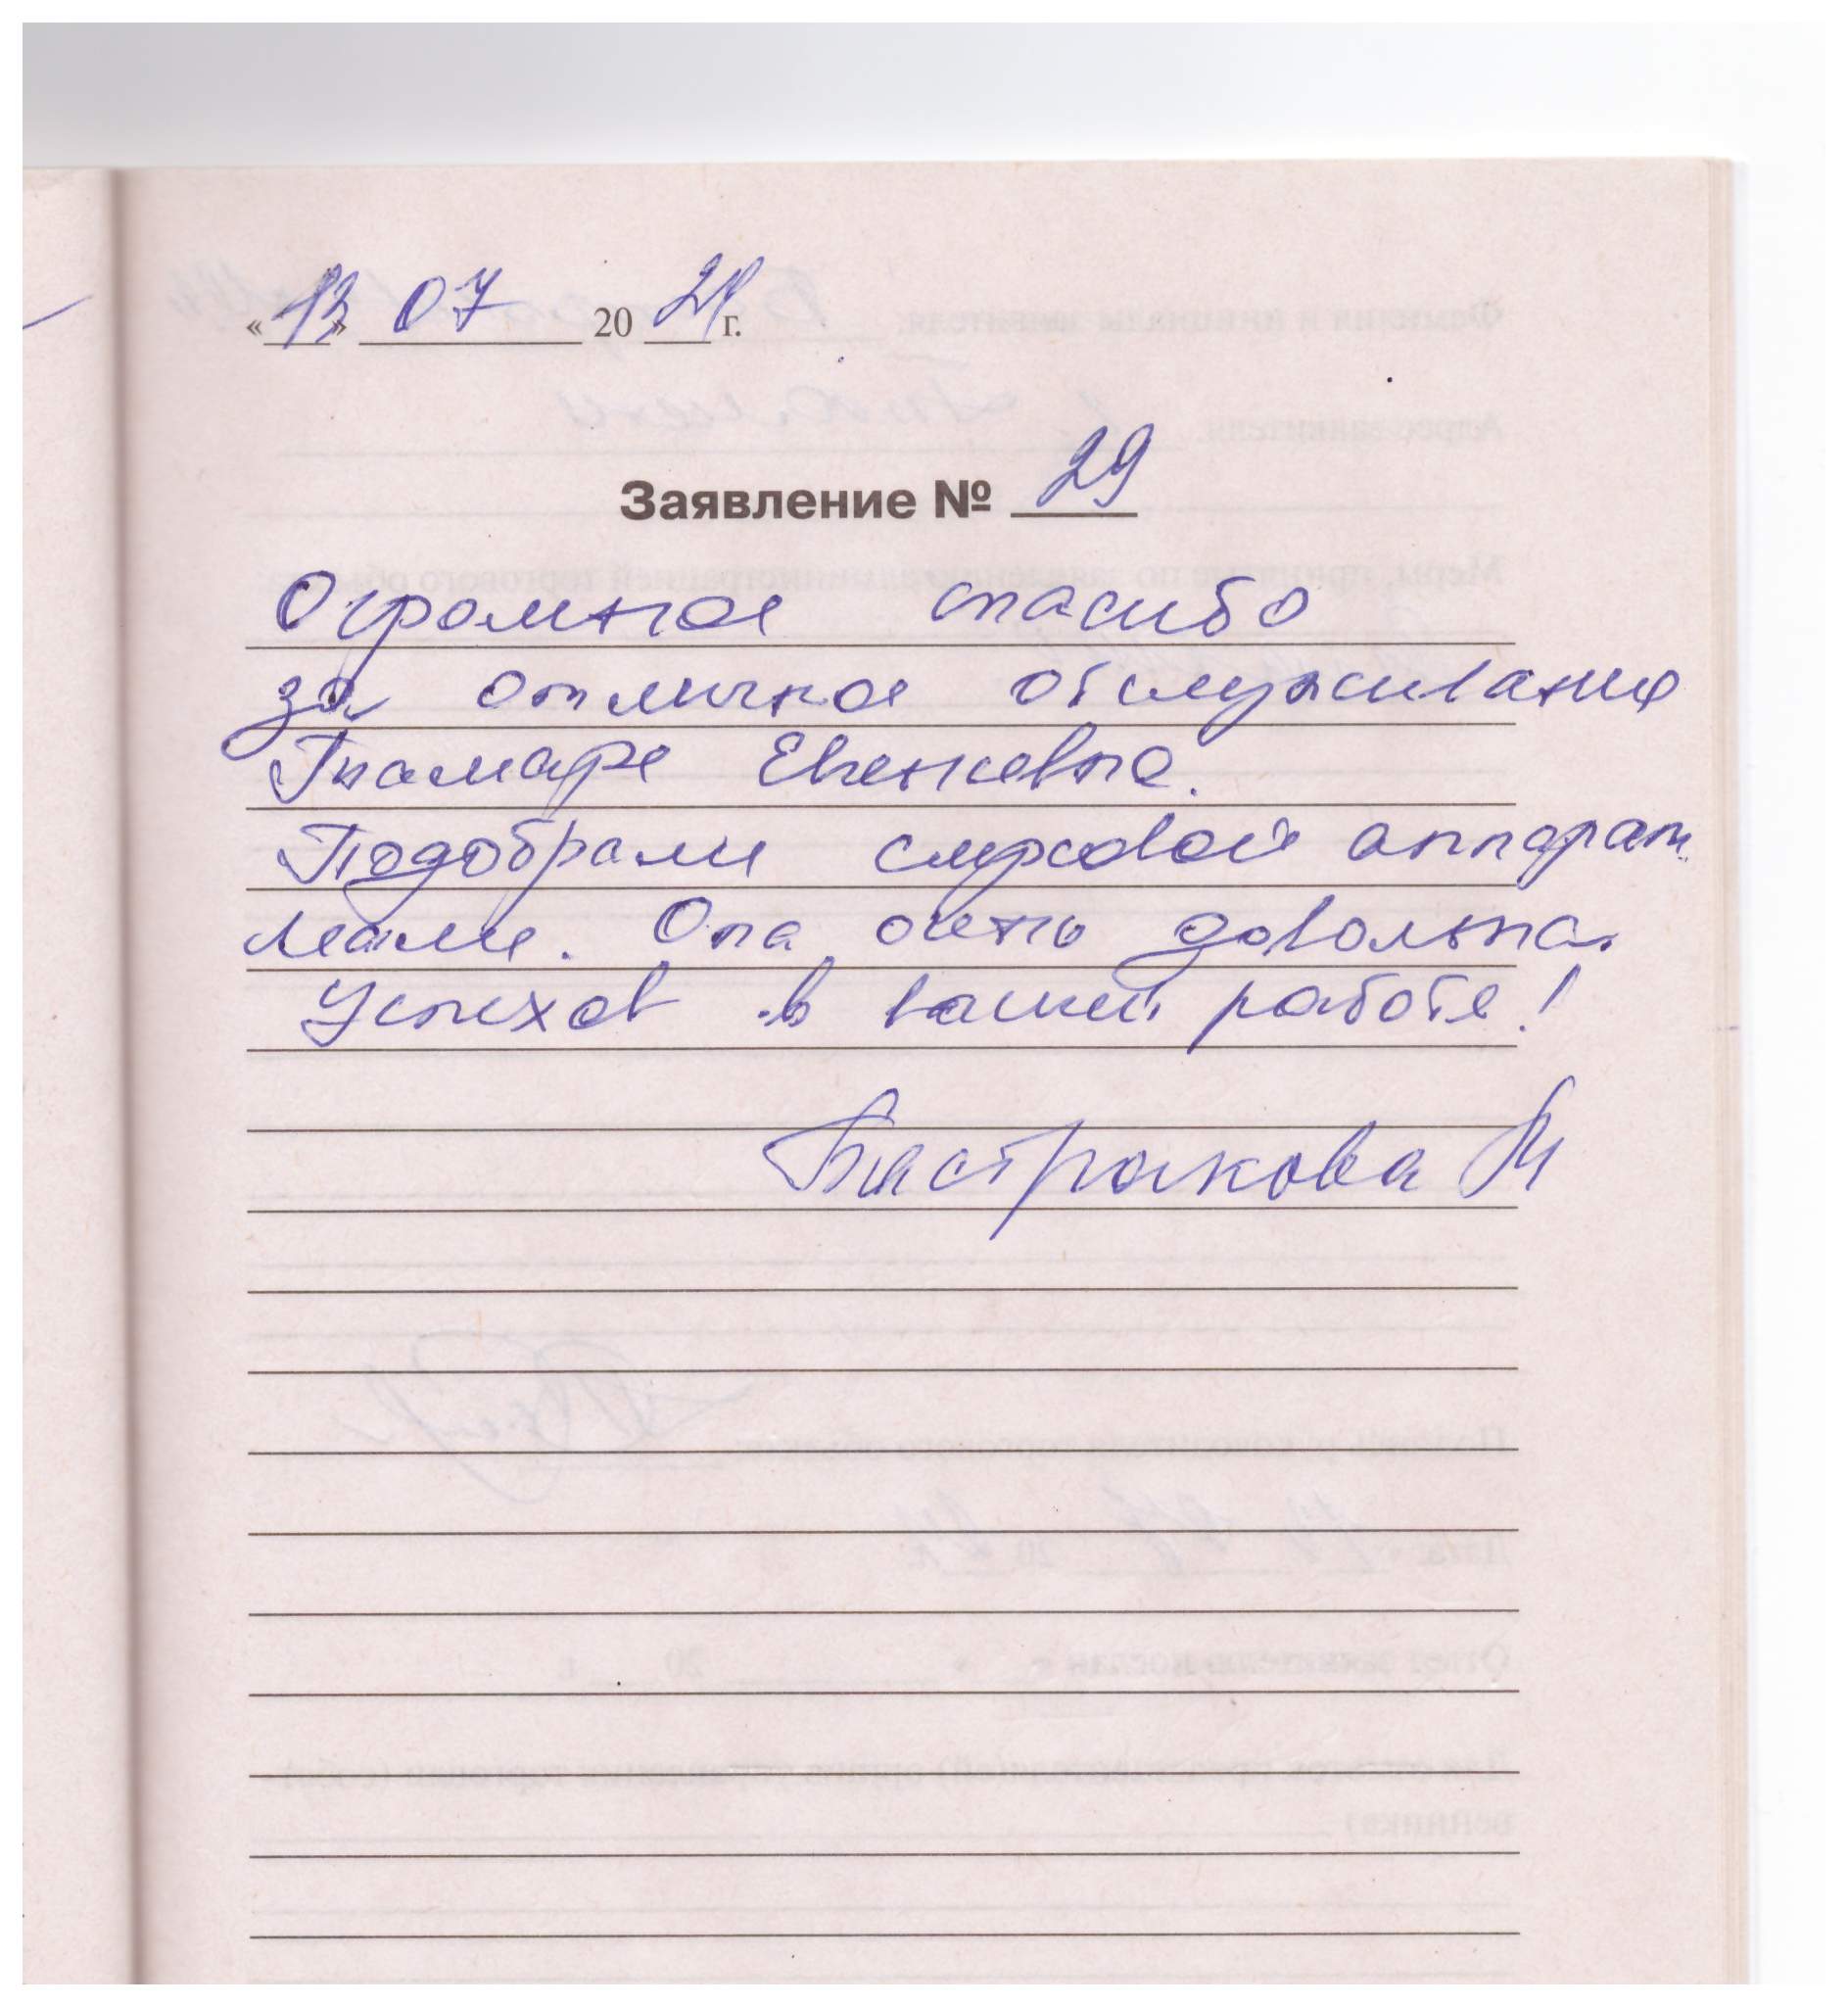 «13» 07 2021 г.
Заявление № 29
Огромное спасибо
за отличное обслуживание
Тамаре Евгеневне.
Подобрали слуховой аппарат
маме. Она очень довольна.
Успехов в вашей работе!
Бастракова М